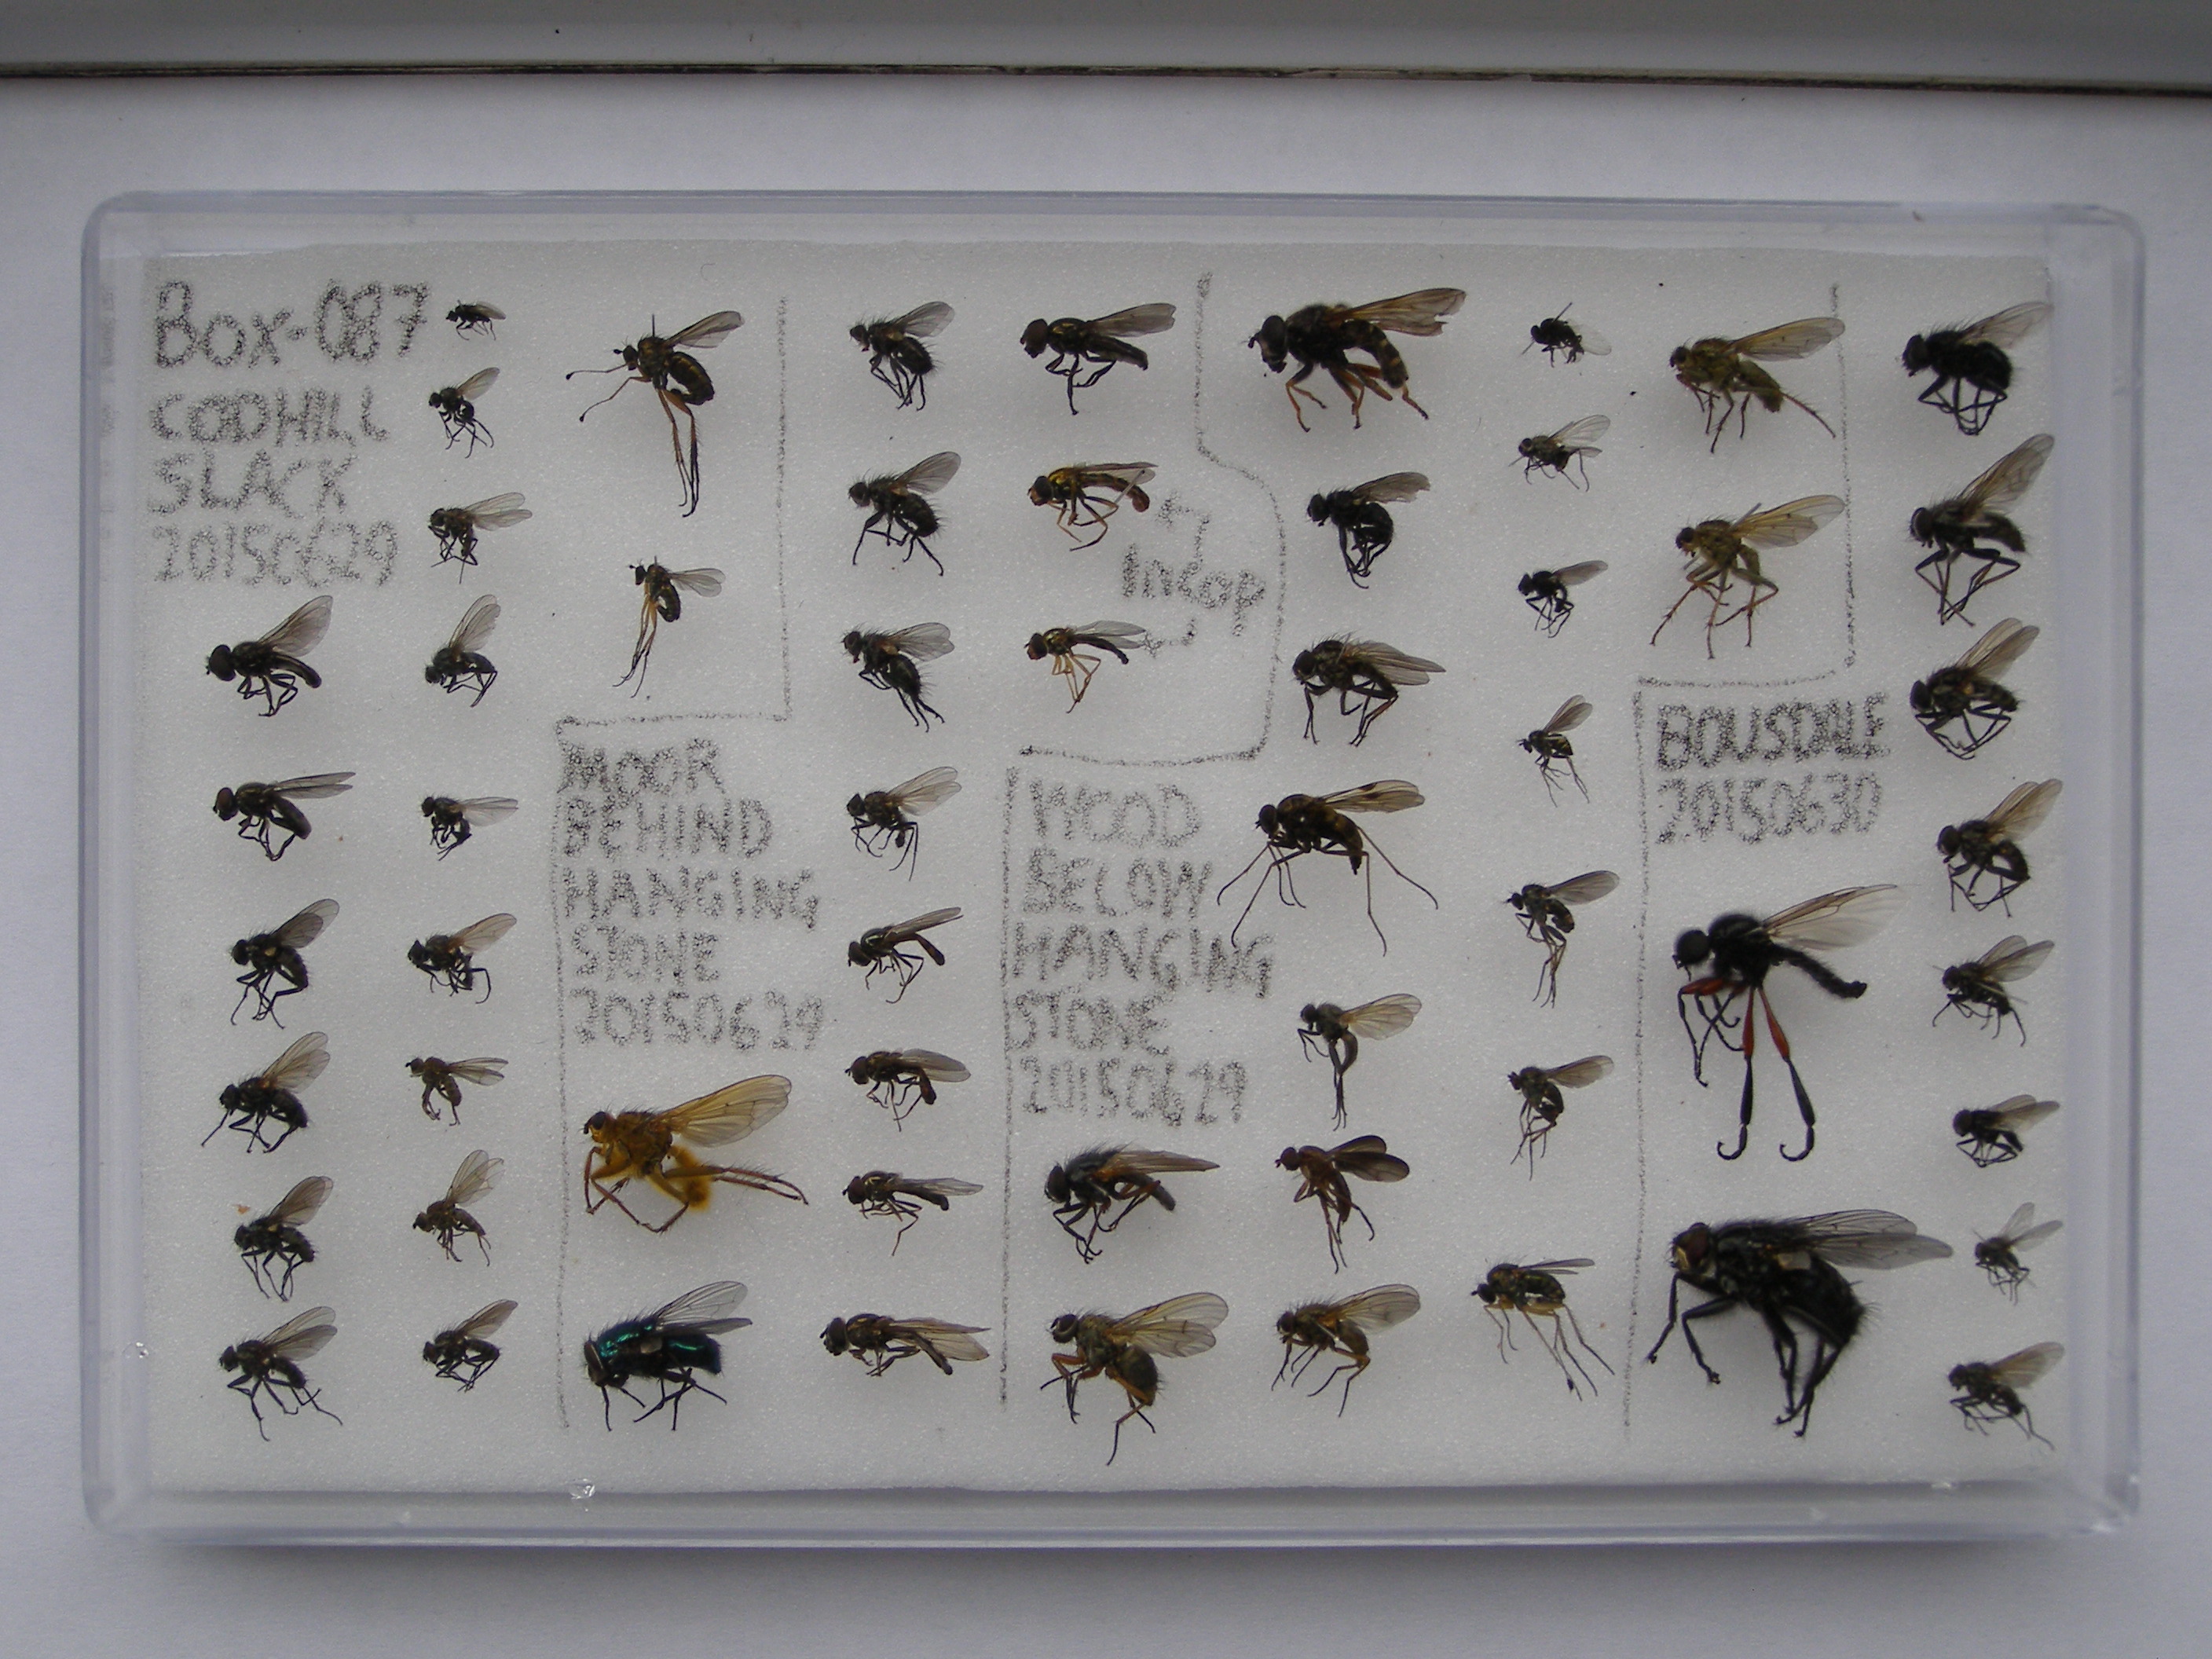 Box-087
CODHILL
SLACK
20150629
MOOR
BEHIND
HANGING
STONE
20150629
In Cop
WOOD
BELOW
HANGING
STONE
20150629
BOUSDALE
20150630